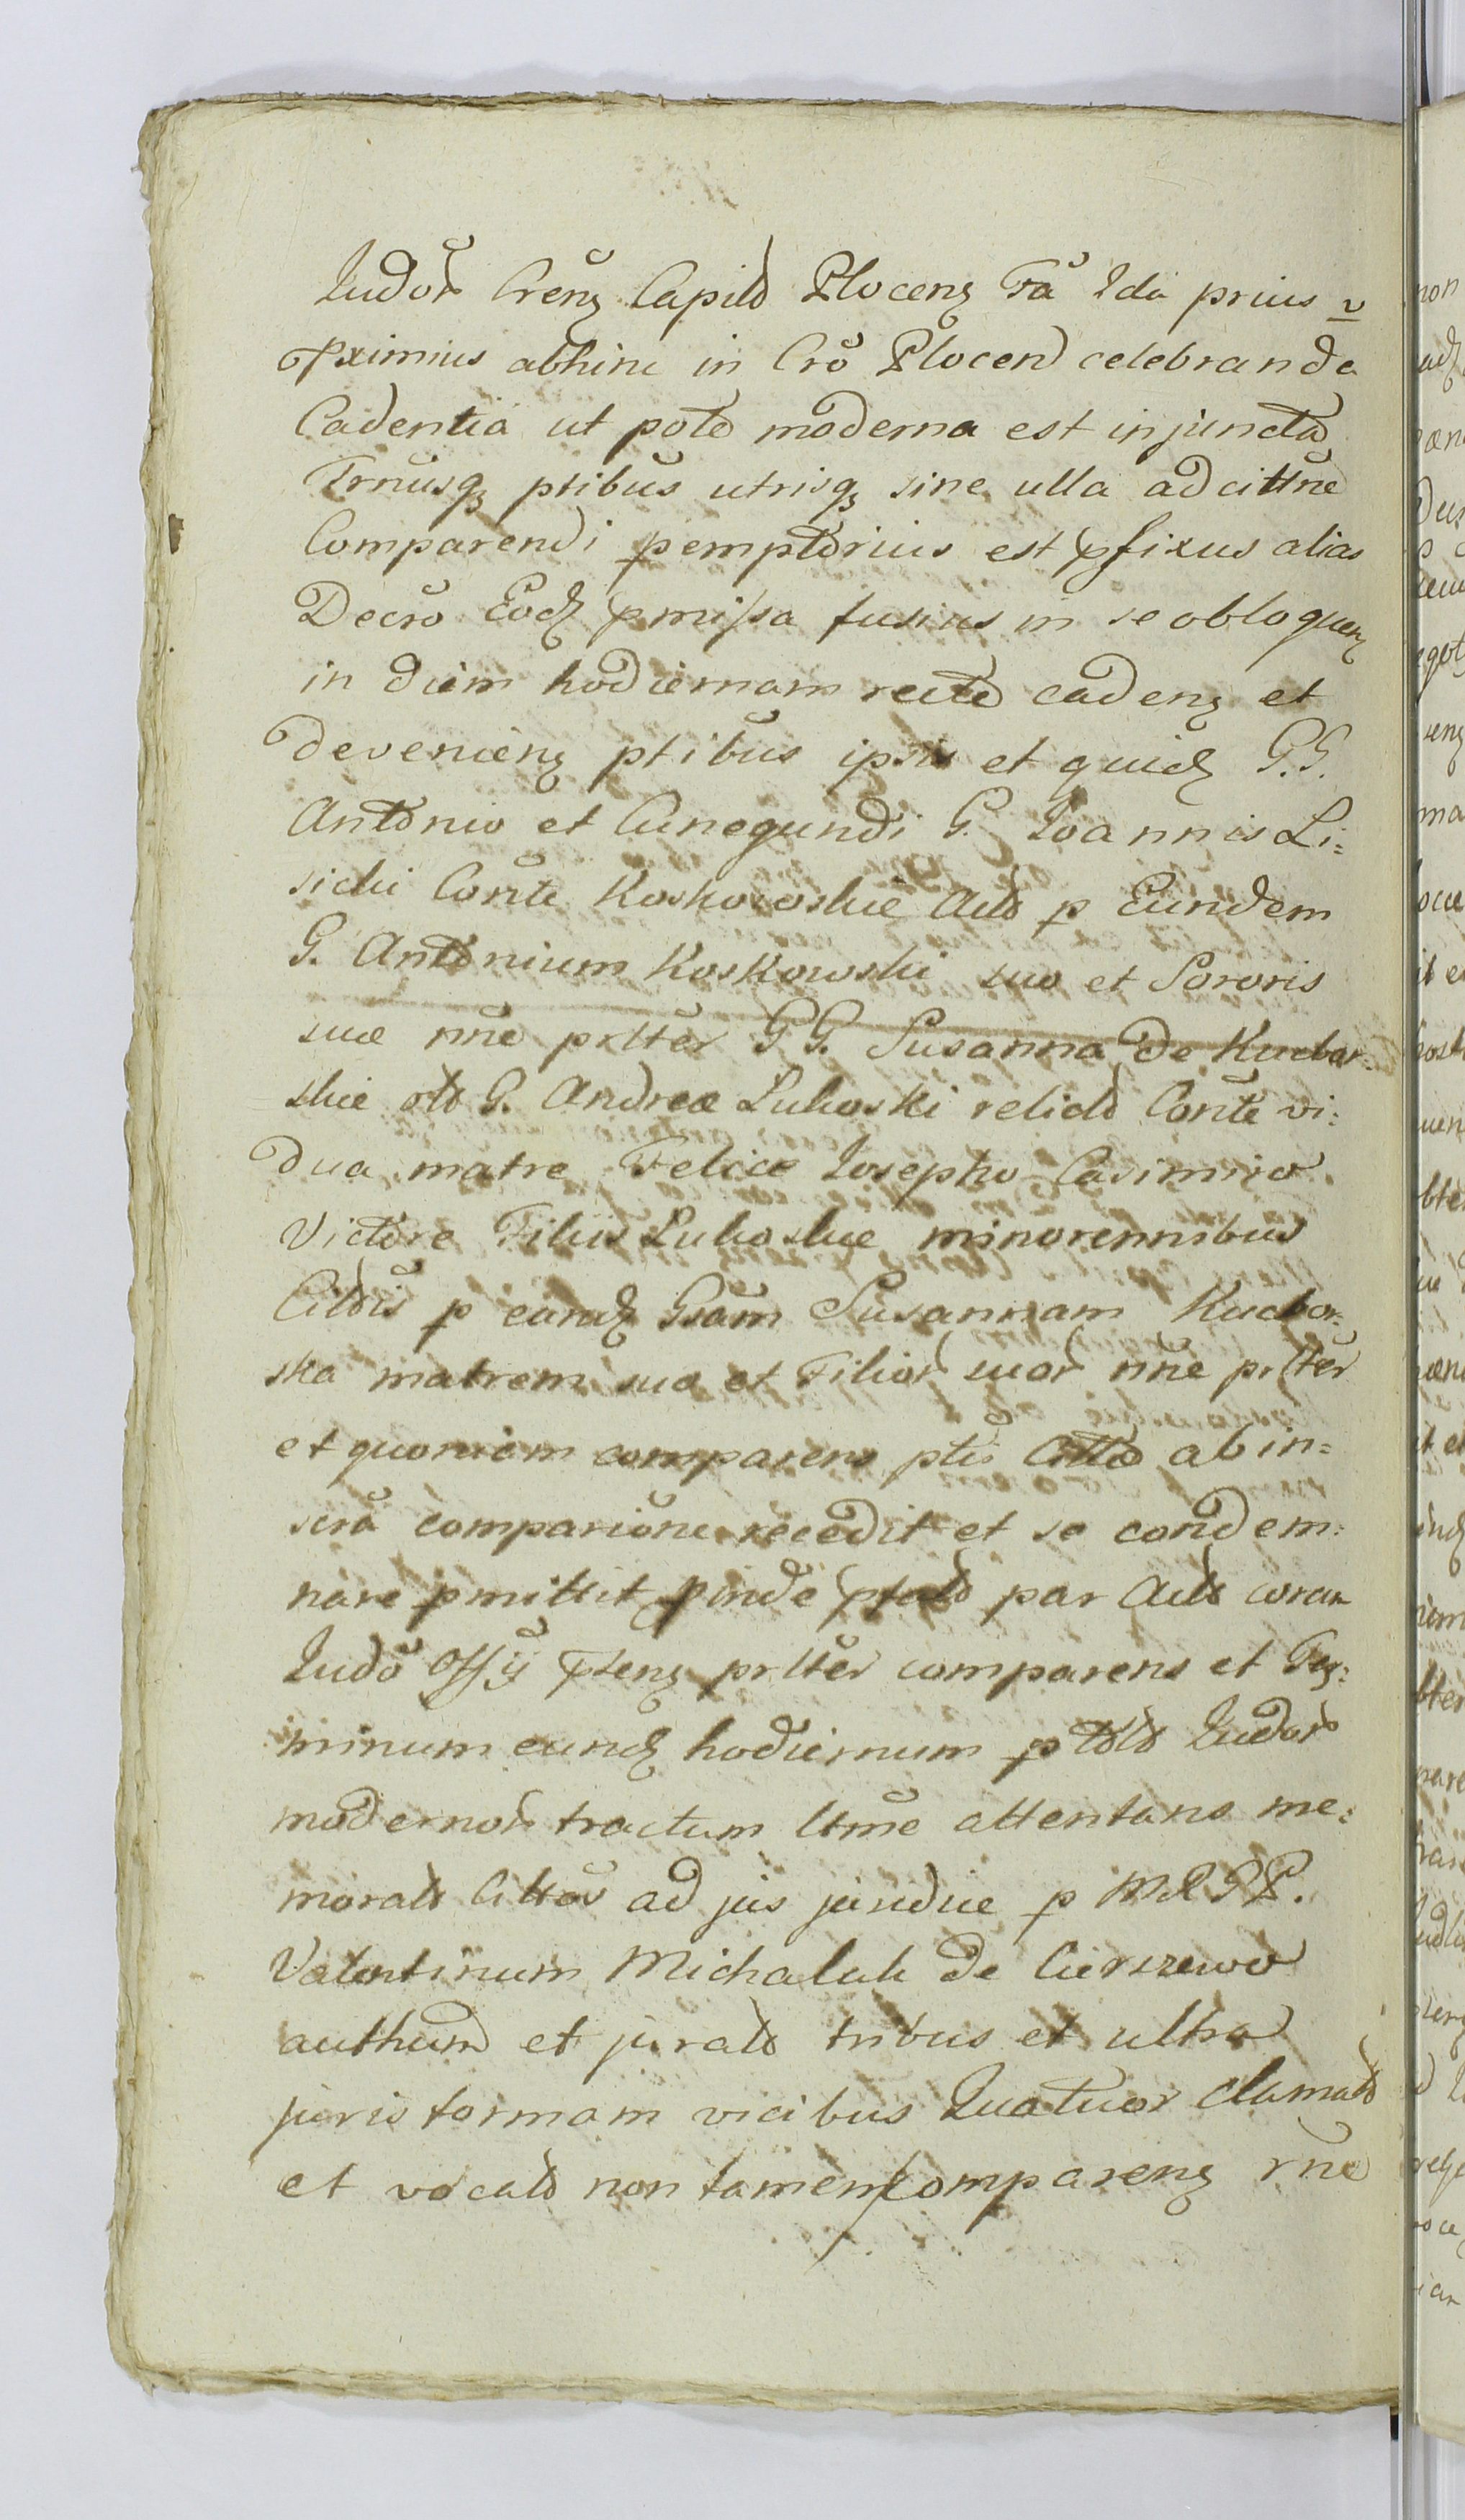 Iudor̃ Cren̄ꝫ Capitl Plocenꝫ Fã 2da prius v
Pximius abhinc in Crõ Plocen celebranda
Cadentia ut pote moderna est injuncta
Trnũsqꝫ ptibũs utrisqꝫ sine ulla adcittñe
Comparendi pemptorius est pfixus alias
Decrõ Eodꝫ pmissa fusius in se obloquenꝫ
in diem hodiernam recte cadenꝫ et
devenienꝫ ptibũs ipsis et quidꝫ G.G.
Antonio et Cunegundi G. Ioannis Li=
sicki Conte Koskowskie Actt p Eundem
G. Antonium Koskowski suo et Sororis
suæ nñe prltẽr GG. Susanna de Kucbor=
skie olt G. Andreæ Lukoski relictt Conte vi=
dua matre Felice Iosepho Casimiro
Victore Filiis Lukoskie minorennibus
Cittis p eandꝫ Gsam Susannam Kucbor=
ska matrem suo et Filior suor nñe prltẽr
et quoniam comparens ptis Citte ab in=
scrã comparione recedit et se condem=
nare pmittit pinde ptatt par Actt coram
Iudõ Offij Ptenꝫ prltẽr comparens et Ter=
minum eundꝫ hodiernum p toto Iudor
modernor tractum ltme attentans me=
moratt Cittos ad jus judice p MRGP.
Valentinum Michaluk de Cierszewo
authum et juratt tribus et ultra
juris formam vicibus Quatuor clamatt
et vocatt non tamen comparenꝫ rñe